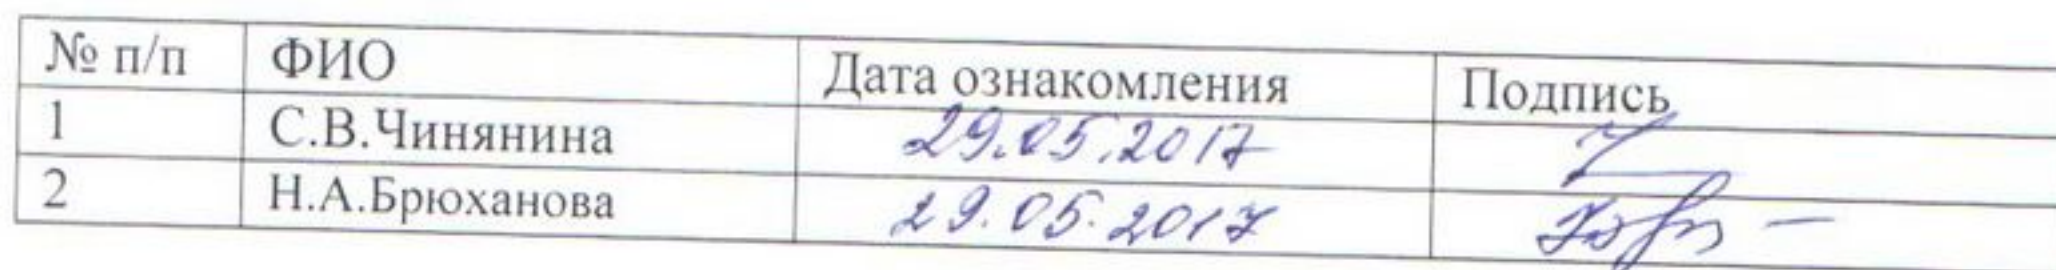 № п/п ФИО Дата ознакомления Подпись
1 С.В.Чинянина 29.05.2017
2 Н.А.Брюханова 29.05.2017